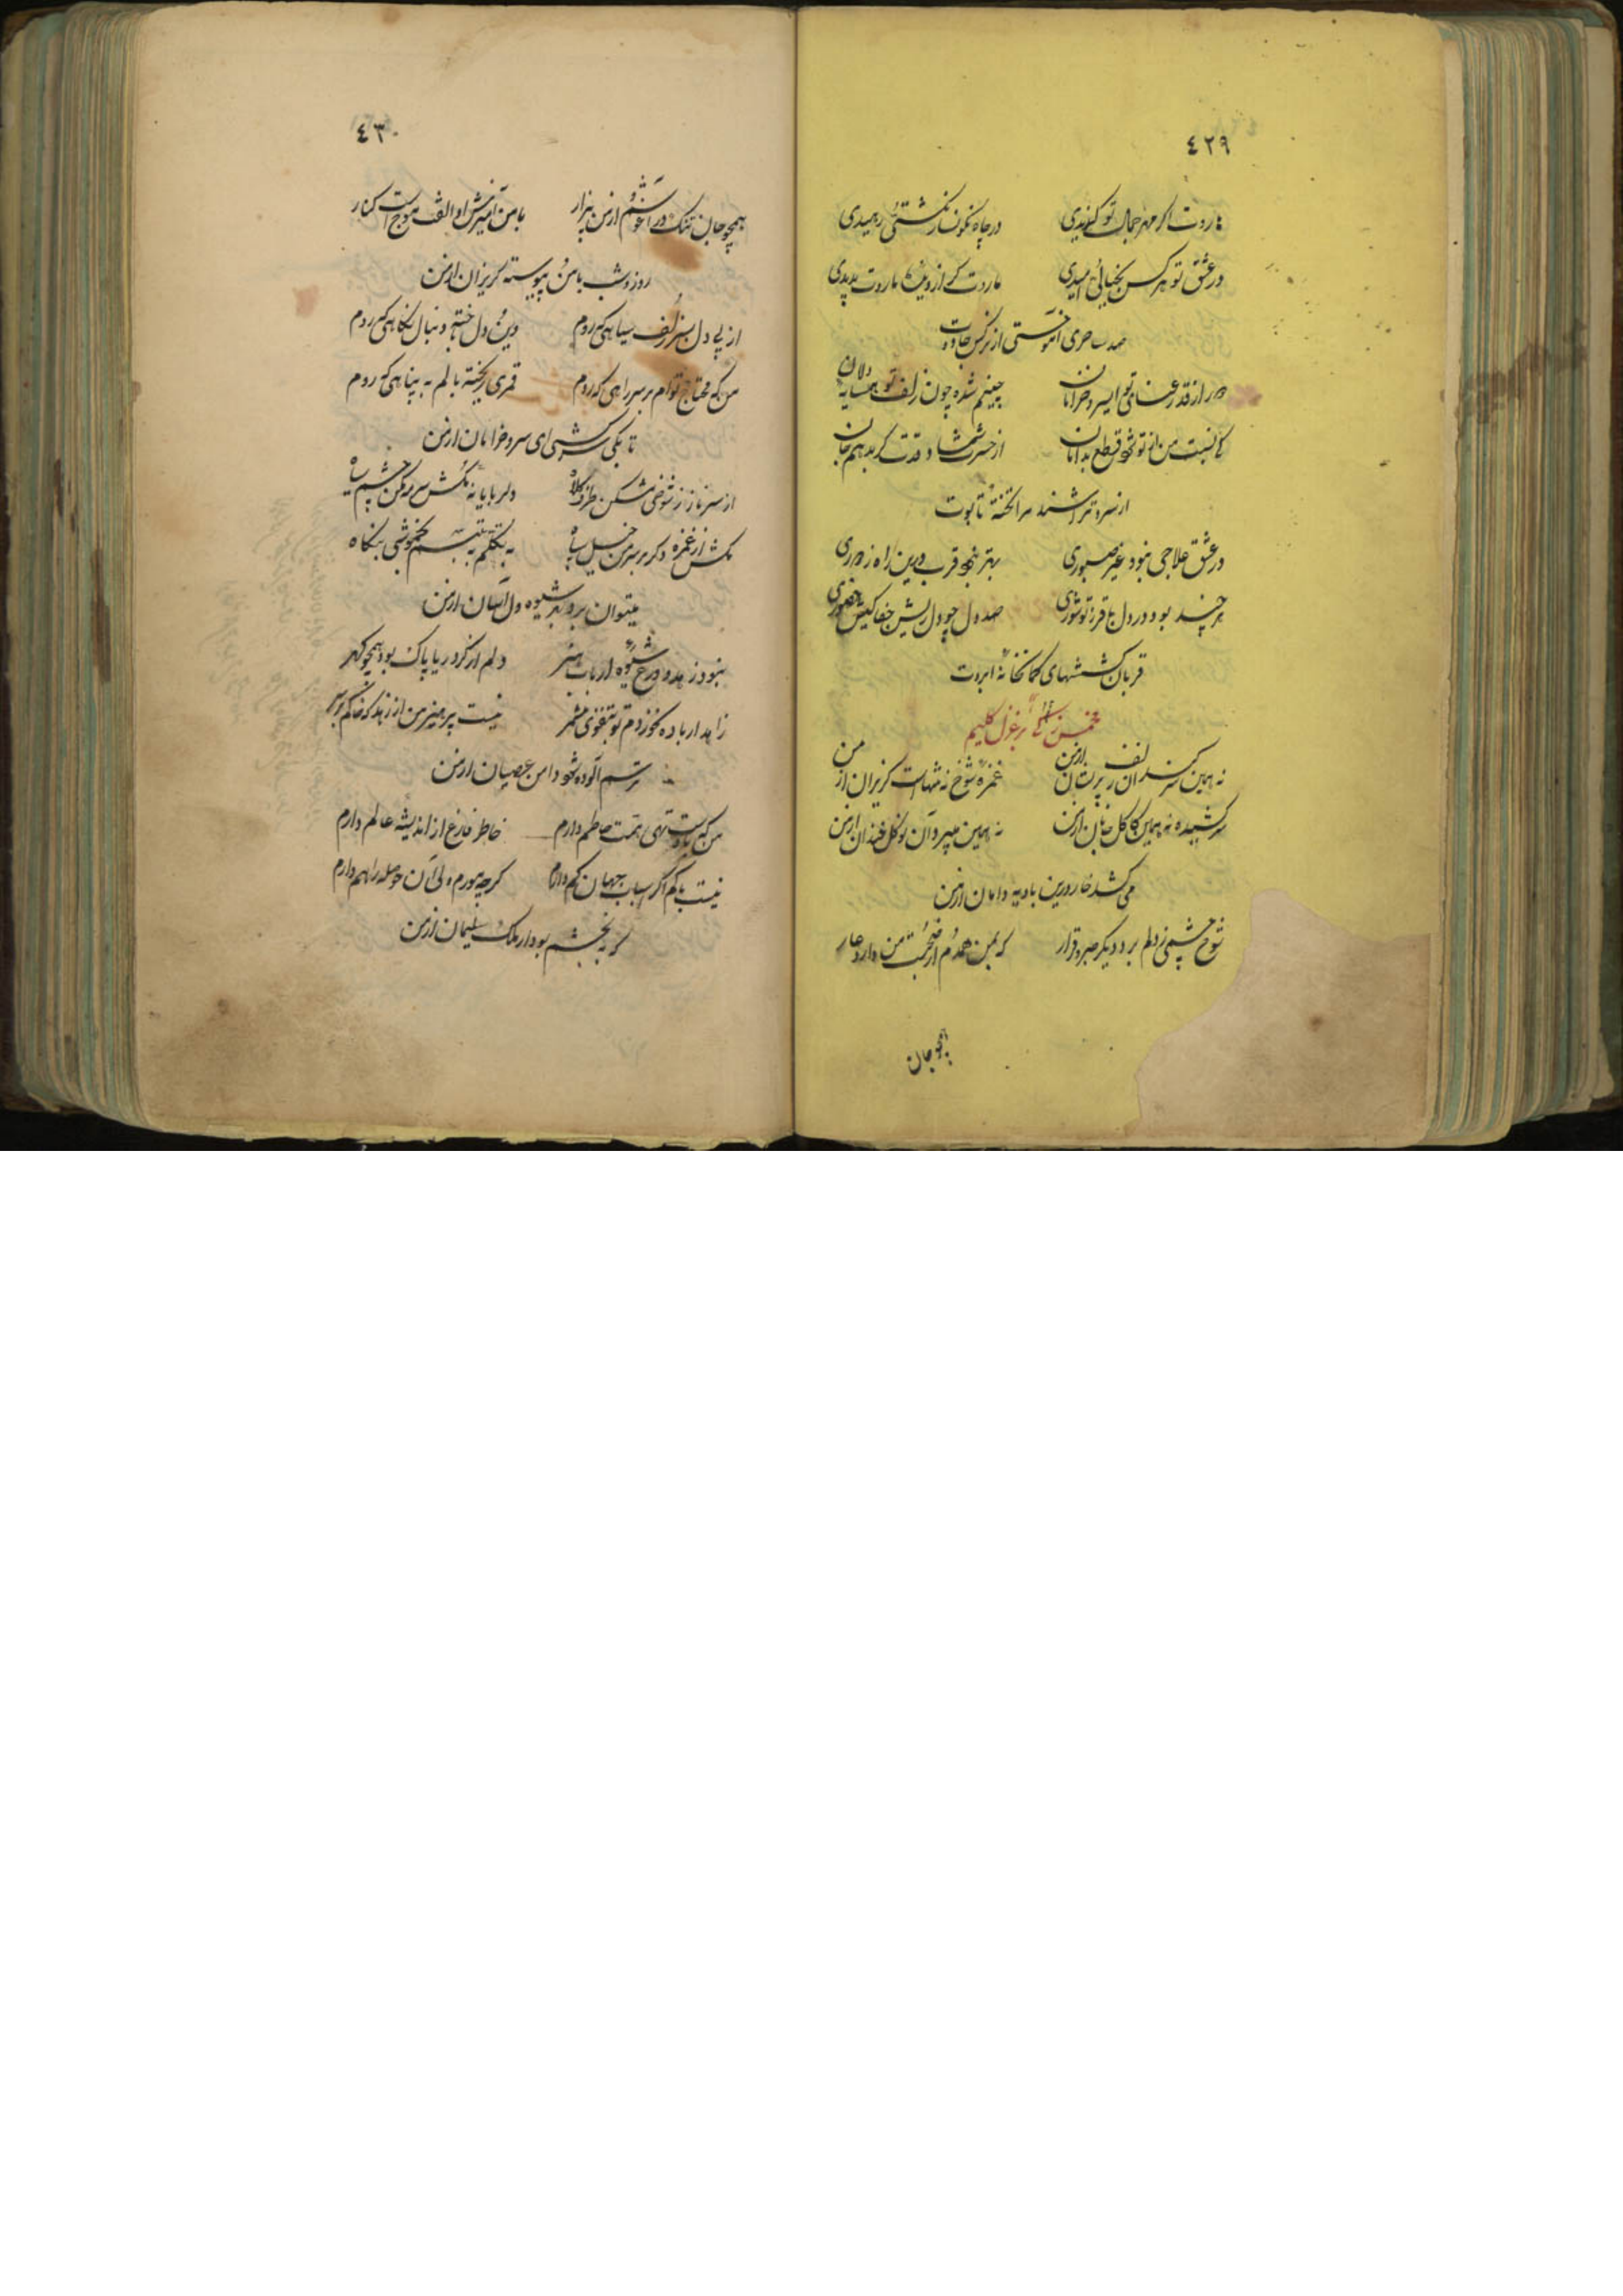 ٤٢٩
هاروت اگر مهر جمال تو گزیدی در چاه نگونسار نگشتی رمیدی
در عشق تو هر کس بخیالی امیدی ماروت گر از دیدن ماروت بدیدی
صد ساحری آموختی از نرگس جادوت
دور از قد رعنای تو ای سرو خرامان چینم شده چون زلف تو همسایه دلان
کانسبت من از تو شود قطع بدامان از حسرت شمشاد قدت گر بدهم جان
از سرو تراشند مرا تختهٔ تابوت
در عشق علاجی نبود غیر صبوری بهتر نبود قرب درین راه ز دوری
هر چند بود در دل باقر ز تو شوری صد دل چو دل ریش جفاکیش حضوری
قربان کششهای کمانخانهٔ ابروت
مخمس بر غزل کلیم
نه همین سرکشد آن زلف پریشان از من غمزه شوخ نه تنهاست گریزان از من
سر کشیده نه همین کاکل جانان از من نه همین میرمد آن نو گل خندان از من
می کشد خار درین بادیه دامان از من
شوخ چشمی ز دلم برد دیگر صبر و قرار که بمن همدم از صحبت من دارد عار
همچو جان
٤٣٠
همچو جان تنگ در آغوشم از من بیزار با من آمیزش او الفت موج است کنار
روز و شب با من و پیوسته گریزان از من
از پی دل بسر زلف سیاهی که روم دین و دل باخته دنبال نگاهی که روم
من که محتاج توام بر سر راهی که روم قمری ریخته بالم به پناهی که روم
تا بکی سرکشی ای سرو خرامان از من
از سر ناز ز شوخی مشکن طرف کلاه دلربایانه مکش سرمه مکن چشم سیاه
مکش از غمزه دگر بر سر من خیل سپاه به تکلم به تبسم بخموشی بنگاه
میتوان برد بهر شیوه دل آسان از من
نبود زهد و ورع شیوه ارباب هنر دلم از گرد ریا پاک بود همچو گهر
زاهد ار باده نخوردم تو بتقوی مشمر نیست پرهیز من از زهد که خاکم بر سر
ترسم آلوده شود دامن عصیان از من
من که با دست تهی همت حاطم دارم خاطر فارغ از اندیشه عالم دارم
نیست باکم اگر اسباب جهان کم دارم گرچه مورم ولی آن حوصله را هم دارم
که به بخشم بود ار ملک سلیمان از من